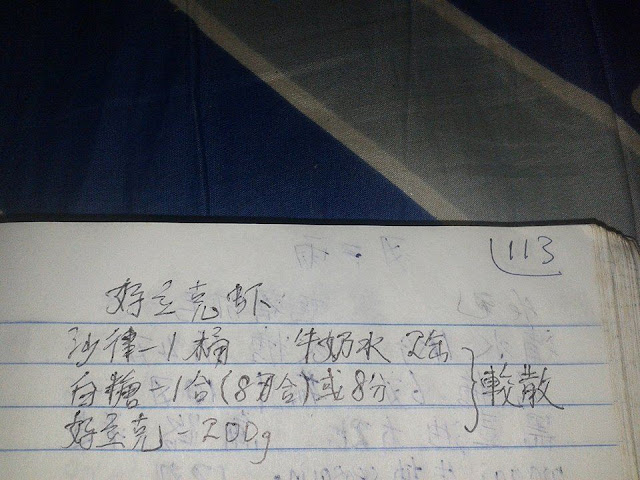 113
好立克虾
沙律-1桶 牛奶水 2缶
白糖-1台(8台)或8分 較散
好立克-200g